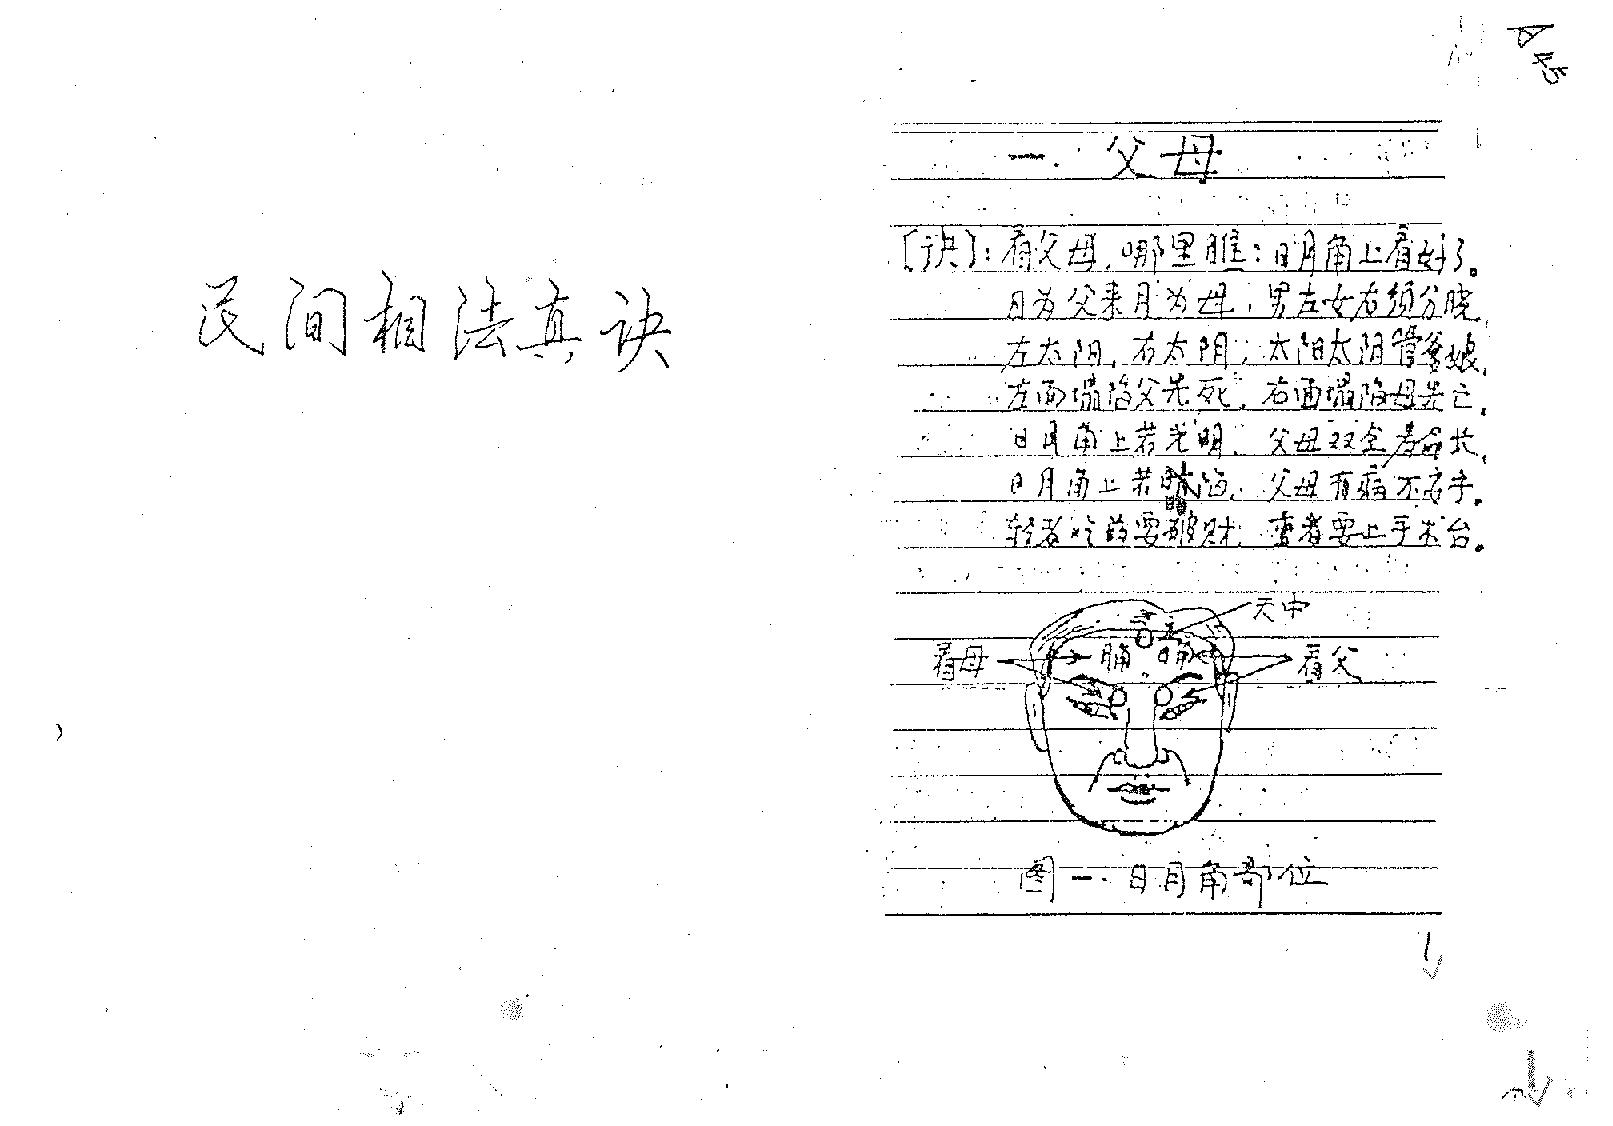 民间相法真诀
A45
一.父母
[诀]:看父母,哪里瞧:日月角上看好了。
日为父来月为母,男左女右须分晓,
左太阳,右太阴,太阳太阴管爹娘,
左面塌陷父先死,右面塌陷母先亡,
日月角上若光明,父母双全寿命长,
日月角上若暗,父母有病不
轻者吃药要破财,重者要上手术台。
天中
看母
看父
月角
日角
图一.日月角部位